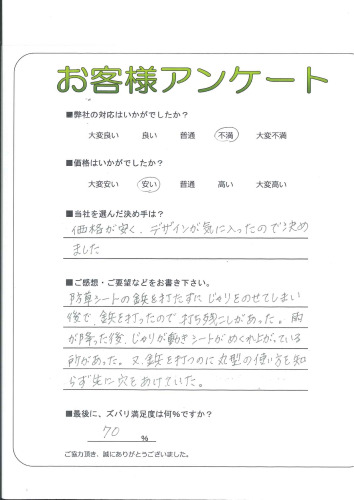 お客様アンケート
■弊社の対応はいかがでしたか?
大変良い 良い 普通 不満 大変不満
■価格はいかがでしたか?
大変安い 安い 普通 高い 大変高い
■当社を選んだ決め手は?
価格が安く、デザインが気に入ったので決め
ました
■ご感想・ご要望などをお書き下さい。
防草シートの鋲を打たずに じゃりをのせてしまい
後で、鋲を打ったので 打ち残こしがあった。雨
が降った後、じゃりが動きシートがめくれ上がっている
所があった。又、鋲を打つのに丸型の使い方を知
らず先に穴をあけていた。
■最後に、ズバリ満足度は何%ですか?
70 %
ご協力頂き、誠にありがとうございました。